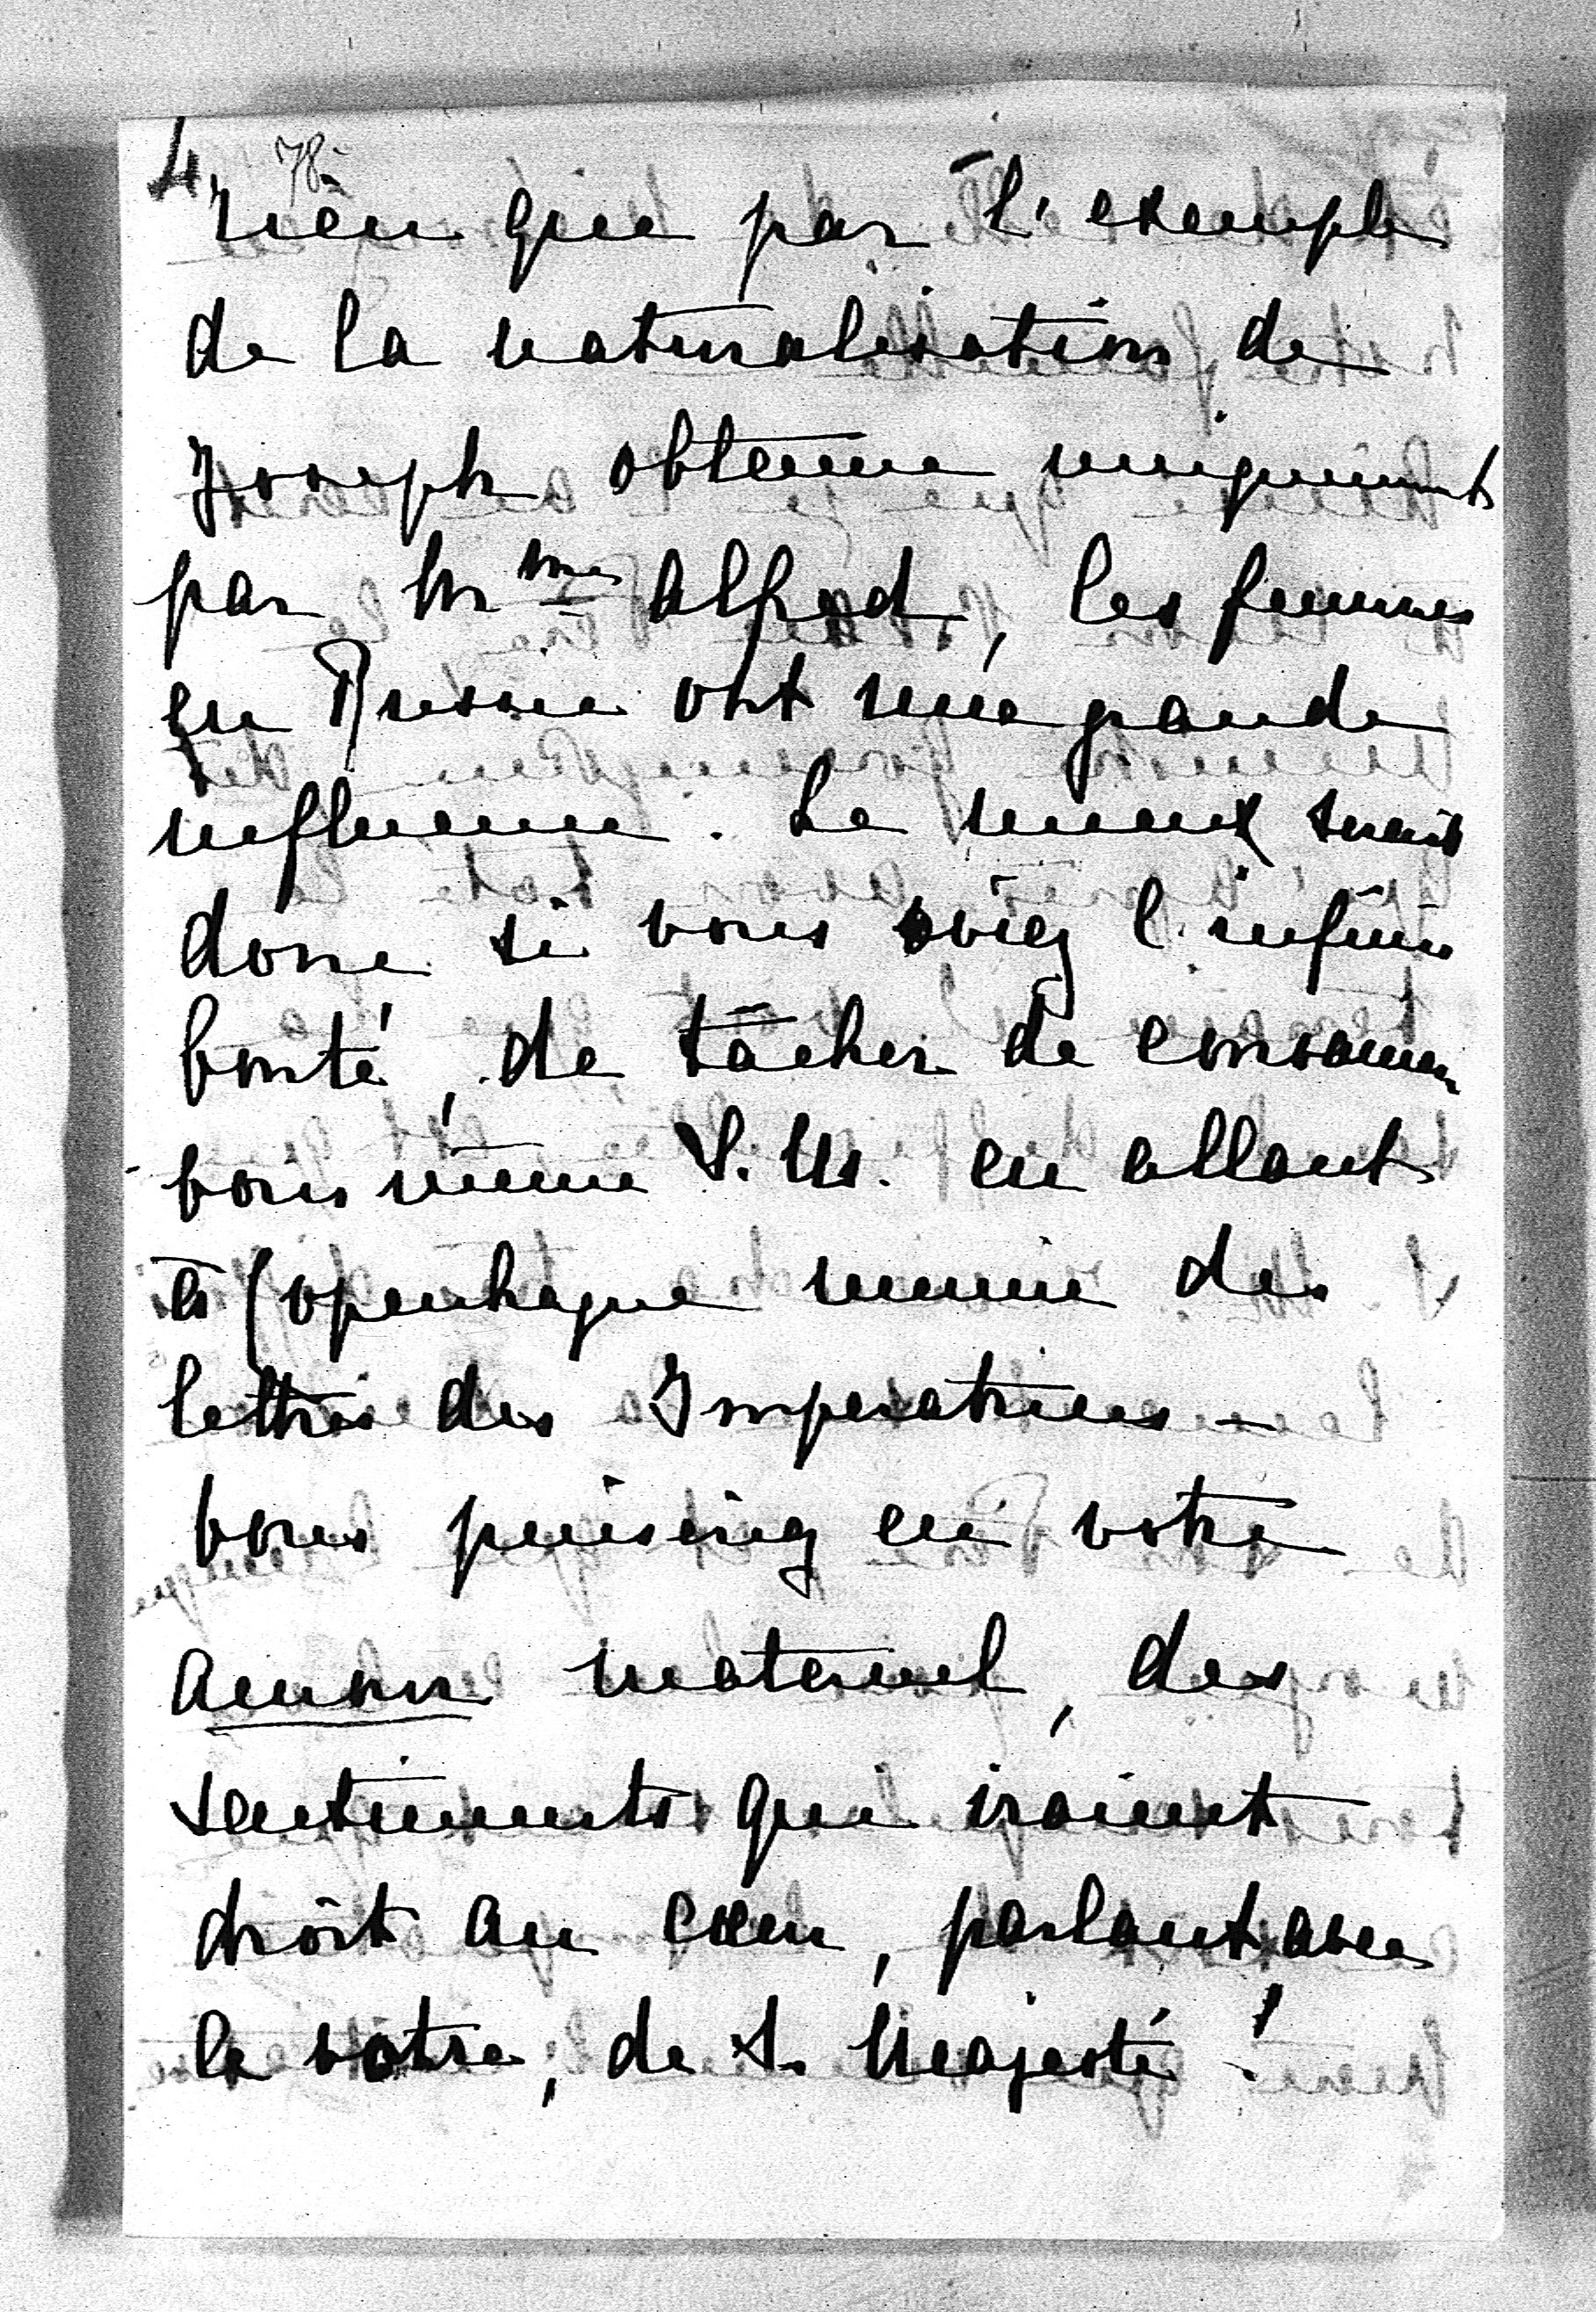 4 78
rien que par l'exemple
de la naturalisation de
Joseph obtenue uniquement
par Mme Alfred, les femmes
en Russie ont une grande
influence. Le mieux serait
donc si vous aviez l'infinie
bonté, de tâcher de
vous même S. M. en allant
à Copenhague munie des
lettres des Imperatrices —
vous puiseriez en votre
amour maternel, des
sentiments qui iraient
droit au cœur, parlant avec
le votre, de S. Majesté!